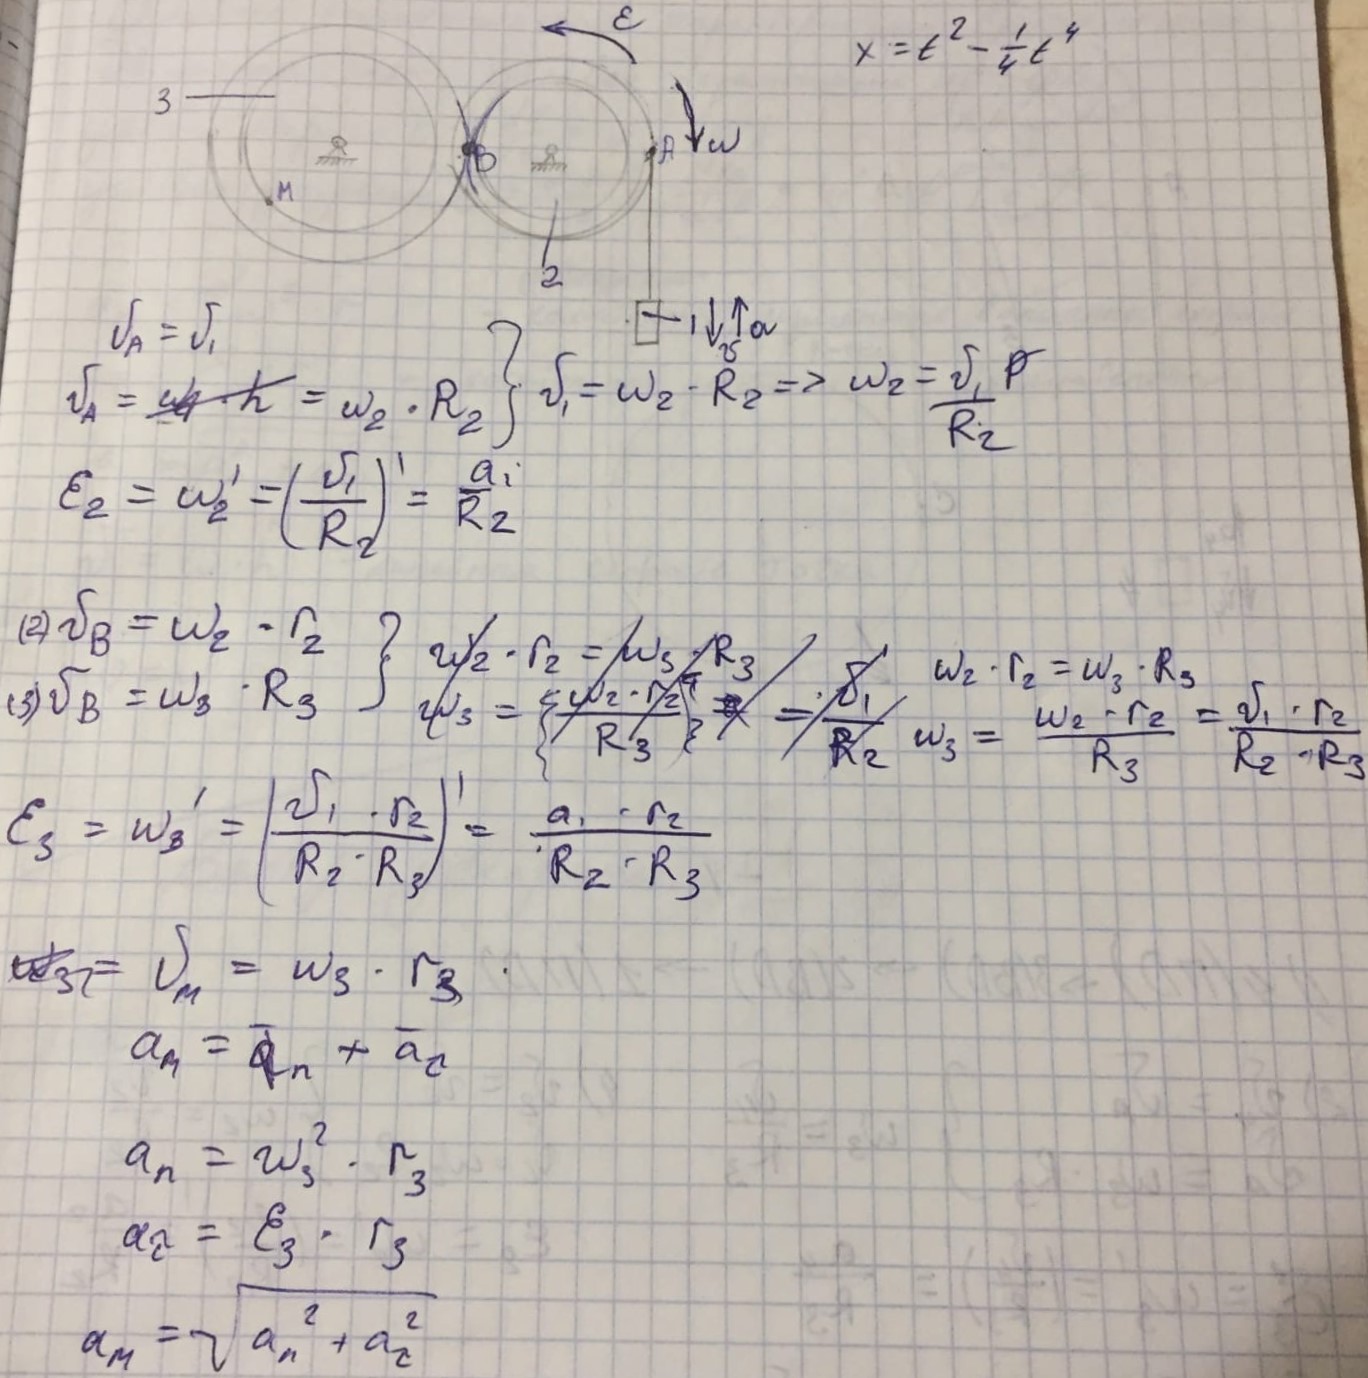 ε
x = t² − 1/4 t⁴
3
B
A
ω
M
2
1 ↓ ↑ a
v
v_A = v₁
v_A = = ω₂ · R₂ } v₁ = ω₂ · R₂ => ω₂ = v₁ / R₂
ε₂ = ω₂' = (v₁ / R₂)' = a₁ / R₂
(2) v_B = ω₂ · r₂ } ω₂ · r₂ = ω₃ · R₃ ω₂ · r₂ = ω₃ · R₃
(3) v_B = ω₃ · R₃ ω₃ = { ω₂ · r₂ / R₃ } = v₁ / R₂ ω₃ = ω₂ · r₂ / R₃ = v₁ · r₂ / R₂ · R₃
ε₃ = ω₃' = (v₁ · r₂ / R₂ · R₃)' = a₁ · r₂ / R₂ · R₃
= v_M = ω₃ · r₃
a_M = ā_n + ā_τ
a_n = ω₃² · r₃
a_τ = ε₃ · r₃
a_M = √(a_n² + a_τ²)